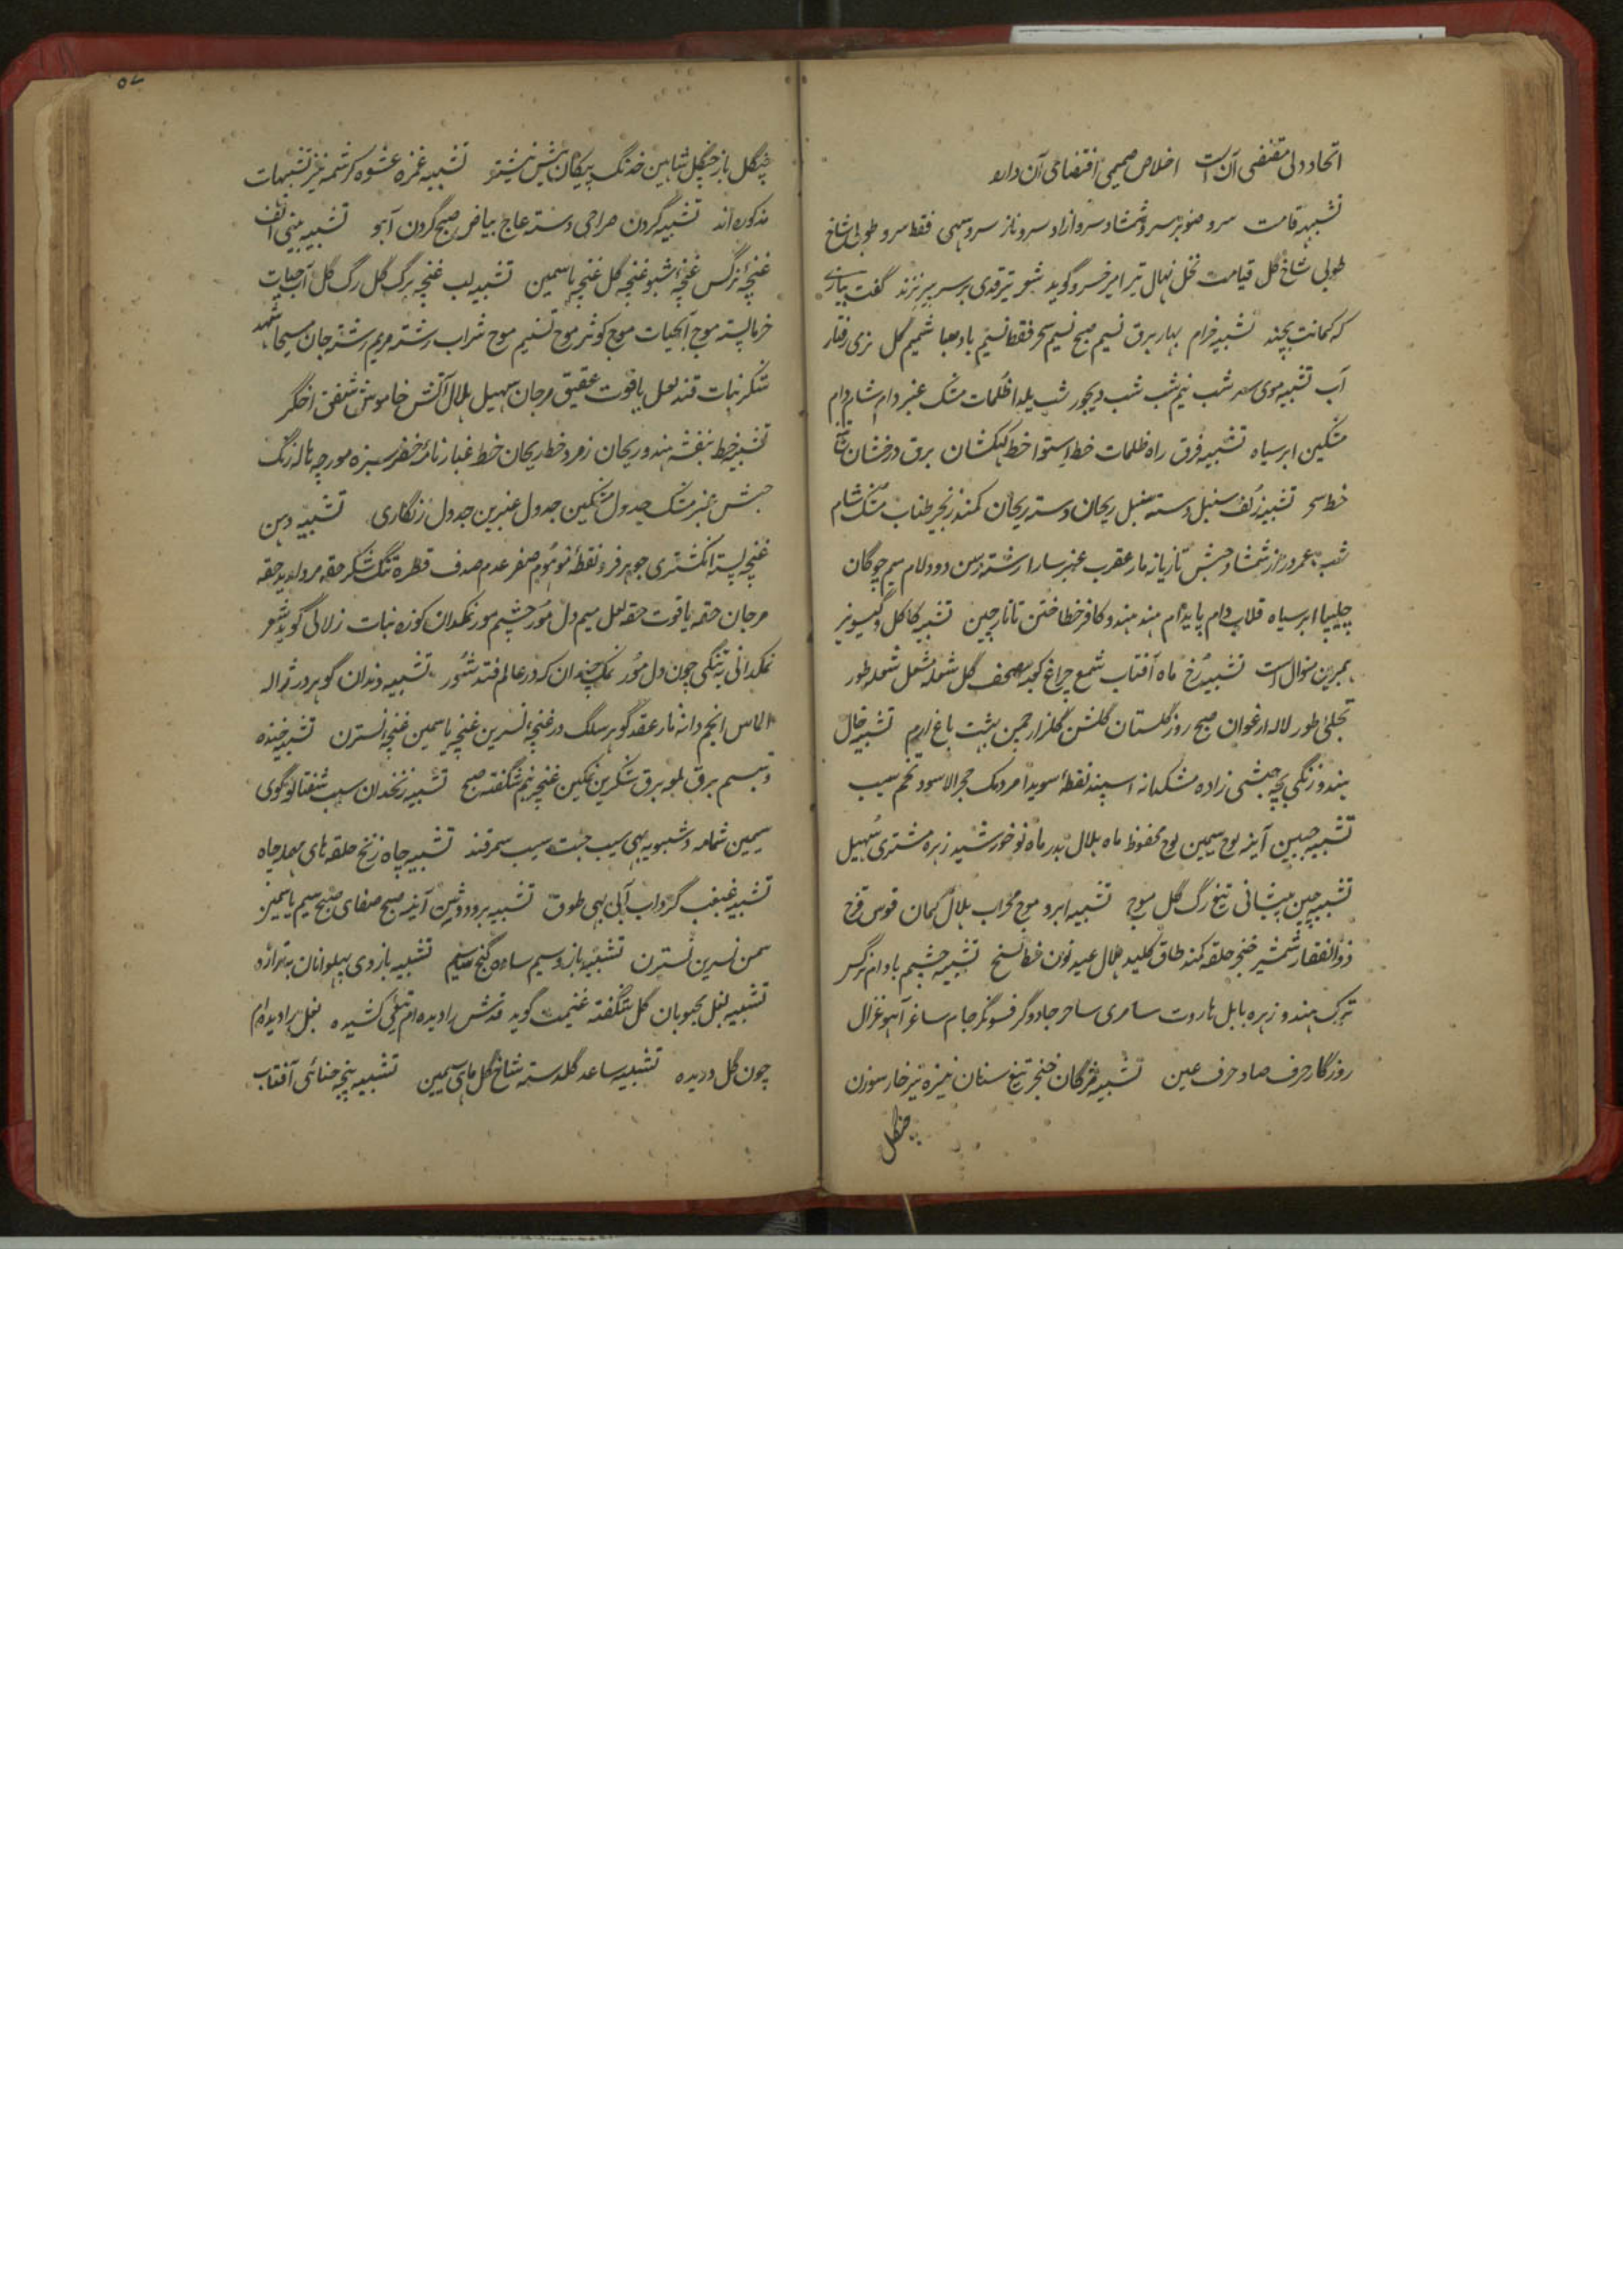 اتحاد دلی مقتضی آن است اخلاص صمیمی اقتضای آن دارد
تشبیه قامت سرو صنوبر سرو شمشاد سرو آزاد سرو ناز سرو سهی فقط سرو طوبی شاخ
طوبی شاخ گل قیامت نخل نهال تیر امیر خسرو گوید شعر تیر قدی بر سر پیر نزند گفت بیازی
که کمانت بچند تشبیه خرام بهار برق نسیم صبح نسیم سحر فقط نسیم باد صبا شمیم گل نری رفتار
آب تشبیه موی سر شب نیم شب شب دیجور شب یلدا ظلمات مشک عنبر دام شام دام
مشکین ابر سیاه تشبیه فرق راه ظلمات خط استوا خط کهکشان برق درخشان
خط سحر تشبیه زلف سنبل دسته سنبل ریحان دسته ریحان کمند زنجیر طناب مشک شام
شب عمر دراز شمشاد حبش تازیانه مار عقرب عنبر سارا رشته رسن دود لام جیم چوگان
چلیپا ابر سیاه قلاب دام پایدام هند هندو کافر خطا ختن تاتار چین تشبیه کاکل و گیسو نیز
بهرین منوال است تشبیه رخ ماه آفتاب شمع چراغ کعبه مصحف گل شعله مشعل شعله طور
تجلی طور لاله ارغوان صبح روز گلستان گلشن گلزار چمن بهشت باغ ارم تشبیه خال
هندو زنگی بچه حبشی زاده مشکدانه اسپند نقطه سویدا مردمک حجر الاسود تخم سیب
تشبیه جبین آینه لوح سیمین لوح محفوظ ماه هلال بدر ماه نو خورشید زهره مشتری سهیل
تشبیه چین پیشانی تیغ رگ گل موج تشبیه ابرو موج محراب هلال کمان قوس قزح
ذوالفقار شمشیر خنجر حلقه کمند طاق کلید هلال عید نون خط نسخ تشبیه چشم بادام نرگس
ترک هندو زهره بابل هاروت سامری ساحر جادوگر فسونگر جام ساغر آهو غزال
روزگار حرف صاد حرف عین تشبیه مژگان خنجر تیغ سنان نیزه تیر خار سوزن
چنگل
چنگل باز چنگل شاهین خدنگ پیکان نیش نیشتر تشبیه غمزه عشوه کرشمه نیز تشبیهات
مذکوره اند تشبیه گردن صراحی دسته عاج بیاض صبح گردن آهو تشبیه بینی الف
غنچه نرگس غنچه شبو غنچه گل غنچه یاسمین تشبیه لب غنچه برگ گل رگ گل آب حیات
خرما پسته موج آبحیات موج کوثر موج تسنیم موج شراب رشته مریم رشته جان مسیحا شهد
شکر نبات قند لعل یاقوت عقیق مرجان سهیل هلال آتش خاموش شفق اخگر
تشبیه خط بنفشه هندو ریحان زمرد خط ریحان خط غبار نامه خضر سبزه مورچه هاله زنگ
حبش عنبر مشک جدول مشکین جدول عنبرین جدول زنگاری تشبیه دهن
غنچه پسته انگشتری جوهر فرد نقطه موهوم صفر عدم صدف قطره تنگ شکر حقه مروارید حقه
مرجان حقه یاقوت حقه لعل میم دل مور چشم مور نمکدان کوزه نبات زلالی گوید شعر
نمکدانی به تنگی چون دل مور نمک چندان که در عالم فتد شور تشبیه دندان گوهر در ژاله
الماس انجم دانه نار عقد گوهر سلک در غنچه نسرین غنچه یاسمین غنچه نسترن تشبیه خنده
و تبسم برق لمعه برق شکرین نمکین غنچه نیم شگفته صبح تشبیه زنخدان سیب شفتالو گوی
سیمین شمامه دشبویه بهی سیب جنت سیب سمرقند تشبیه چاه زنخ حلقه های چاه
تشبیه غبغب گرداب آبی بهی طوق تشبیه بر و دوش آینه صبح صفای صبح سیم یاسمین
سمن نسرین نسترن تشبیه بازو سیم ساده گنج سیم تشبیه بازوی پهلوانان
تشبیه بغل محبوبان گل شگفته غنیمت گوید قدش را دیده ام تیغی کشیده بغل را دیده ام
چون گل دریده تشبیه ساعد گلدسته شاخ گل ماهی سیمین تشبیه پنجه حنائی آفتاب